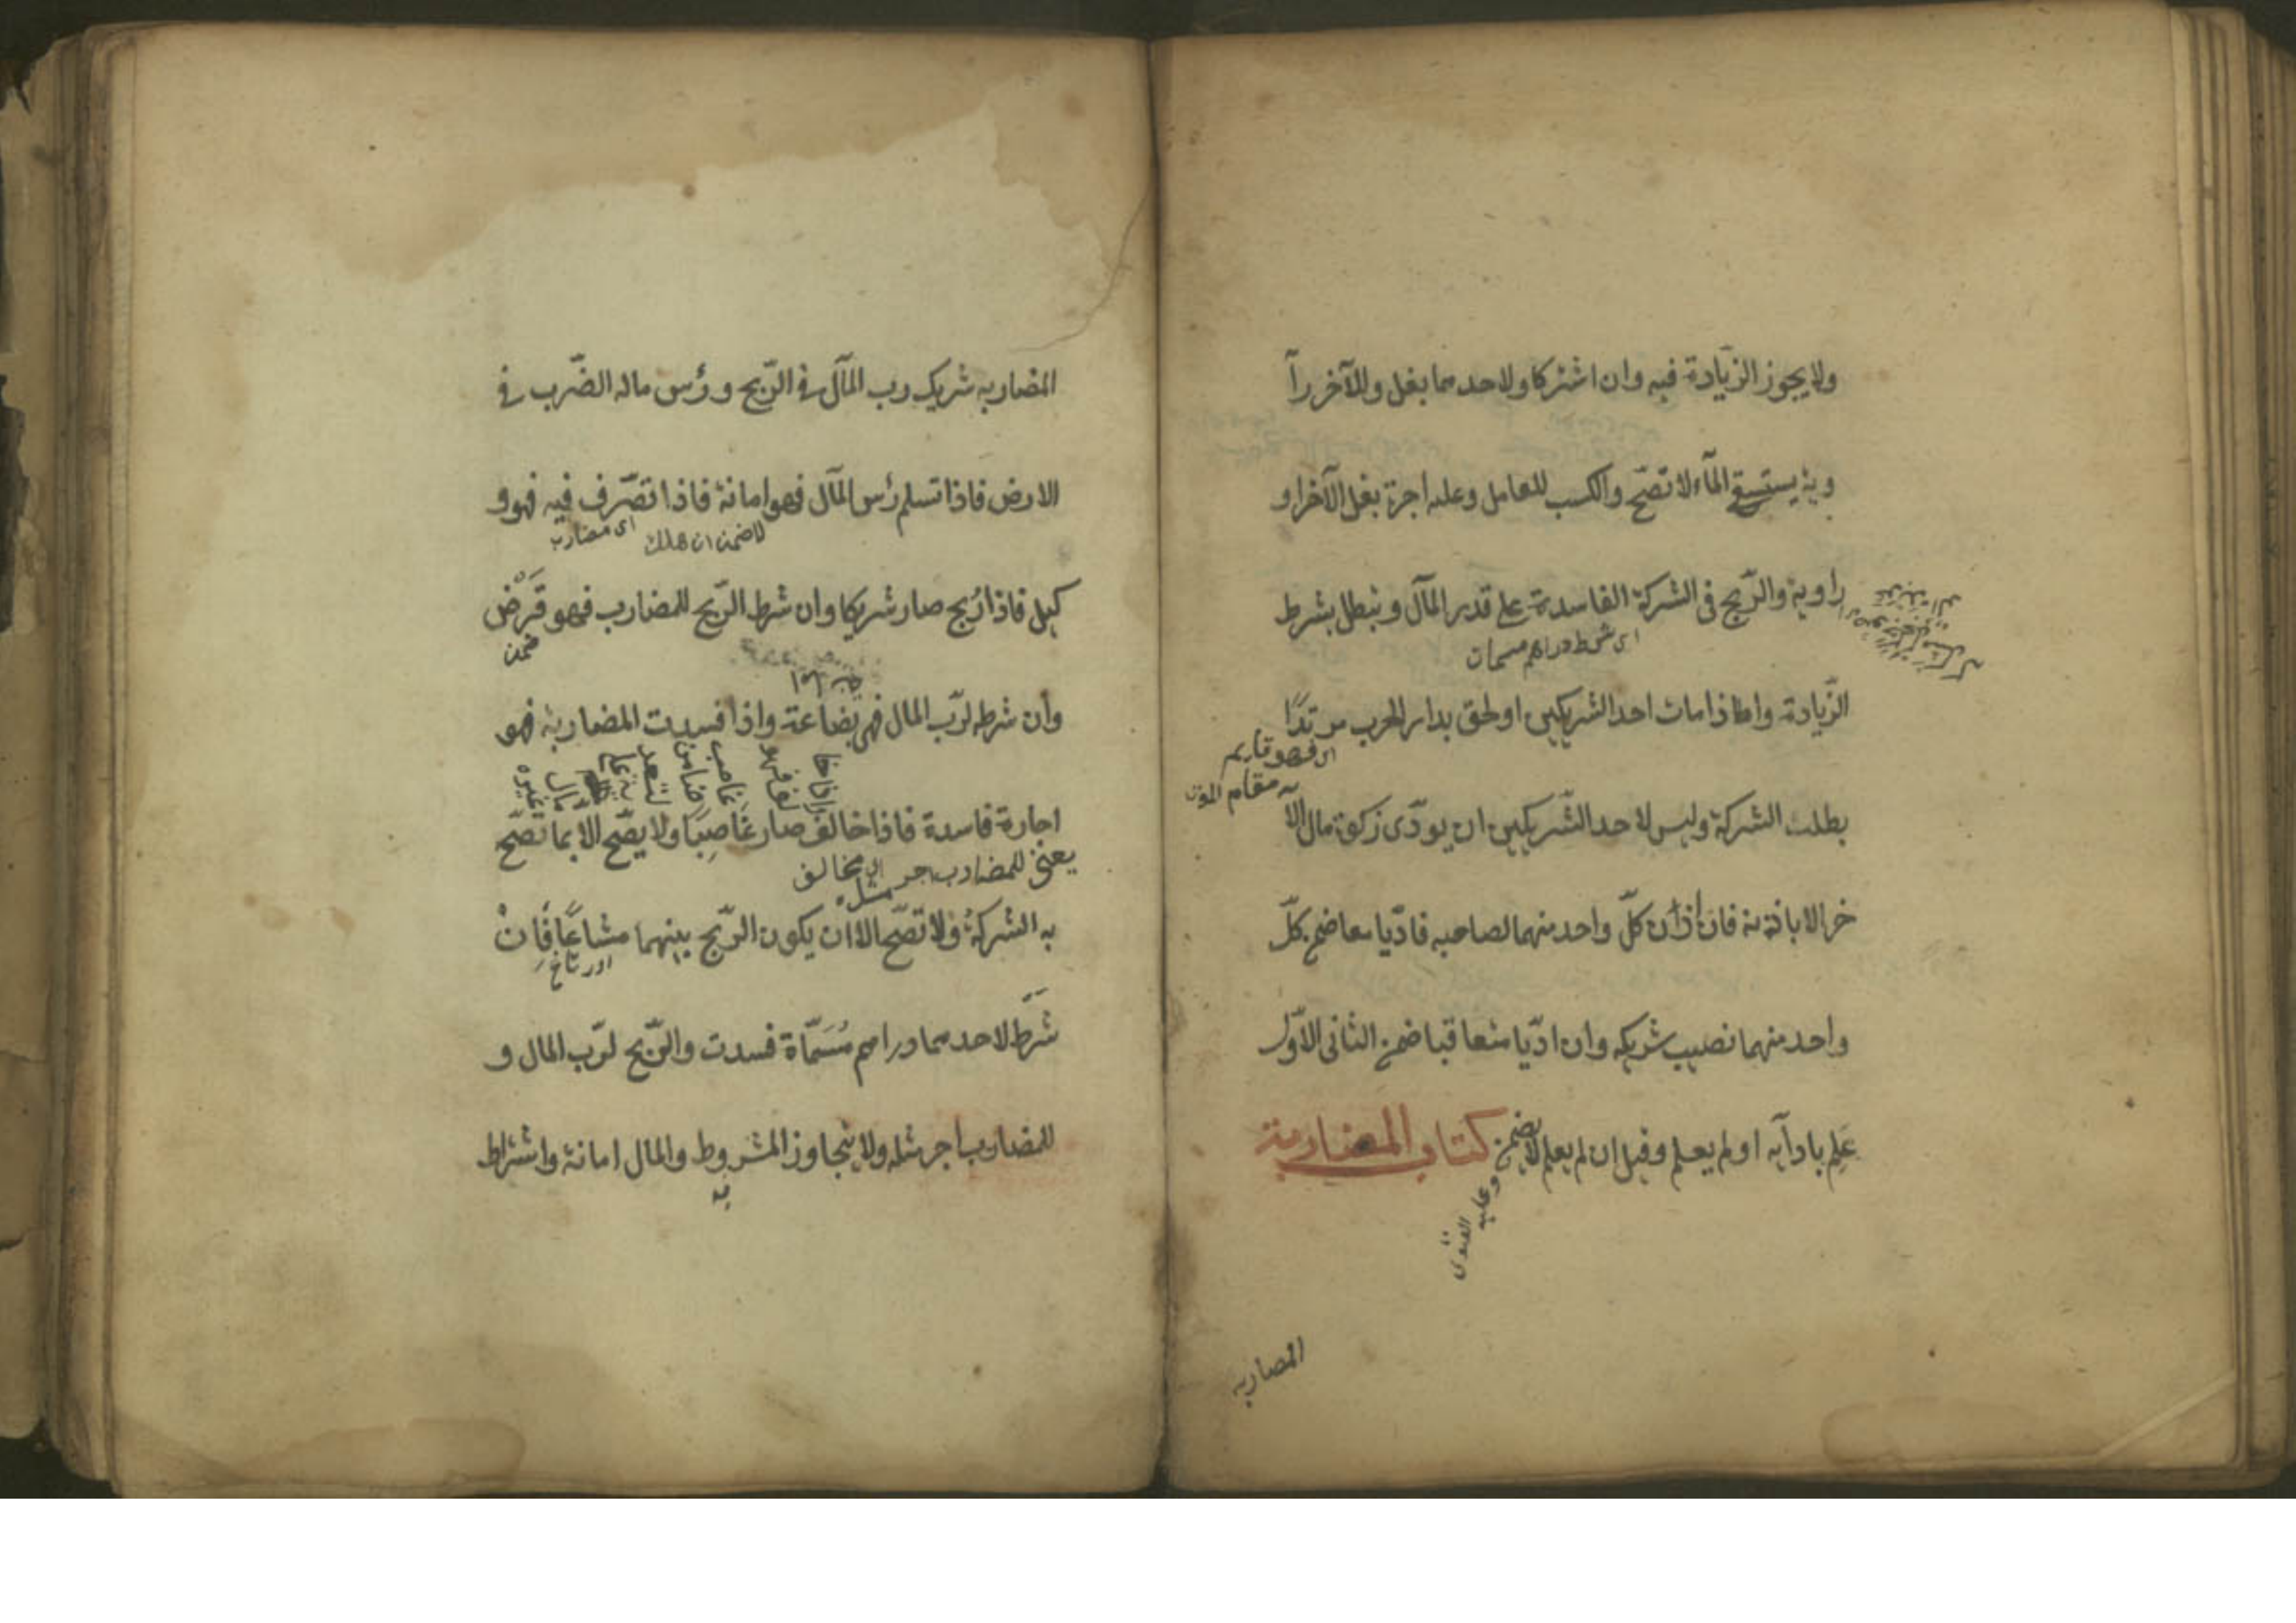 ولا يجوز الزيادة فيه وان اشتركا ولاحدهما بغل وللآخر رآ
وية يستسقى المآء لا تصّح والكسب للعامل وعليه اجرة بغل الآخر او
راوية والرّبح فى الشركة الفاسدة على قدر المآل وتبطل بشرط
اى شرط دراهم مسمات
الزّيادة واذا مات احد الشريكين او لحق بدار الحرب مرتدًا
بطلت الشركة وليس لاحد الشّريكين ان يودّى زكوة مال الآ
اى فهو قايم
مقام
خر الا باذنه فان اذن كلّ واحد منهما لصاحبه فادّيا معا ضمن كلّ
واحد منهما نصيب شريكه وان ادّيا متعاقبا ضمن الثانى الاوّل
عَلِم بادآيه او لم يعلم وقيل ان لم يعلم لا يضمن كتاب المضاربة
وعليه الفتوى
المضاربه
المضاربه شريك رب المآل فى الرّبح ورؤس ماله الضّرب فى
الارض فاذا تسلم رؤس المآل فهو امانة فاذا تصّرف فيه فهو و
لا ضمن ان هلك
اى مضارب
كيل فاذا رُبح صار شريكا وان شرط الرّبح للمضارب فهو قَرْض
ضمن
وان شرطه لرّب المال فهى بضاعة واذا فسدت المضاربة فهو
اجارة فاسدة فاذا خالف صار غَاصِبًا ولا يصّح الا بما تصّح
يعنى للمضارب اجر مثله
اى مخالف
به الشركة ولا تصّح الا ان يكون الرّبح بينهما مشاعًا فَاِنْ
شَرَط لاحدهما دراهم مُسَمّاة فسدت والرّبح لرّب المال و
للمضارب اجر مثله ولا يتجاوز المشروط والمال امانة واشتراط
به